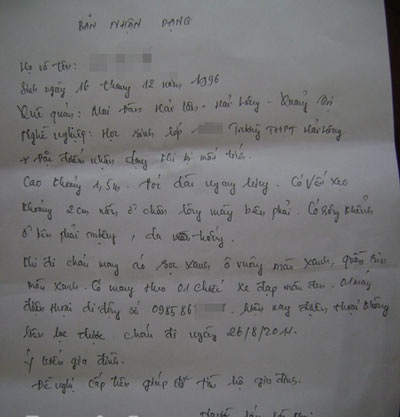 BẢN NHẬN DẠNG
Họ và tên:
Sinh ngày 16 tháng 12 năm 1996
Quê quán: Mai Hải - Hải Lăng - Quảng Trị
Nghề nghiệp: Học sinh lớp Trường THPT Hải Lăng.
* Đặc điểm nhận dạng khi bị mất tích.
Cao khoảng 1,5m. tóc dài ngang lưng. Có vết sẹo
khoảng 2cm nằm ở chân lông mày bên phải. Có răng khểnh
ở bên phải miệng, da trắng.
Khi đi cháu mang áo sọc xanh ô vuông màu xanh, quần bò
màu xanh. Có mang theo 01 chiếc xe đạp màu đen. 01 máy
điện thoại di động số 098586 hiện nay điện thoại không
liên lạc được. cháu đi ngày 26/8/2011.
ý kiến gia đình.
Đề nghị cấp trên giúp đỡ tìm hộ gia đình.